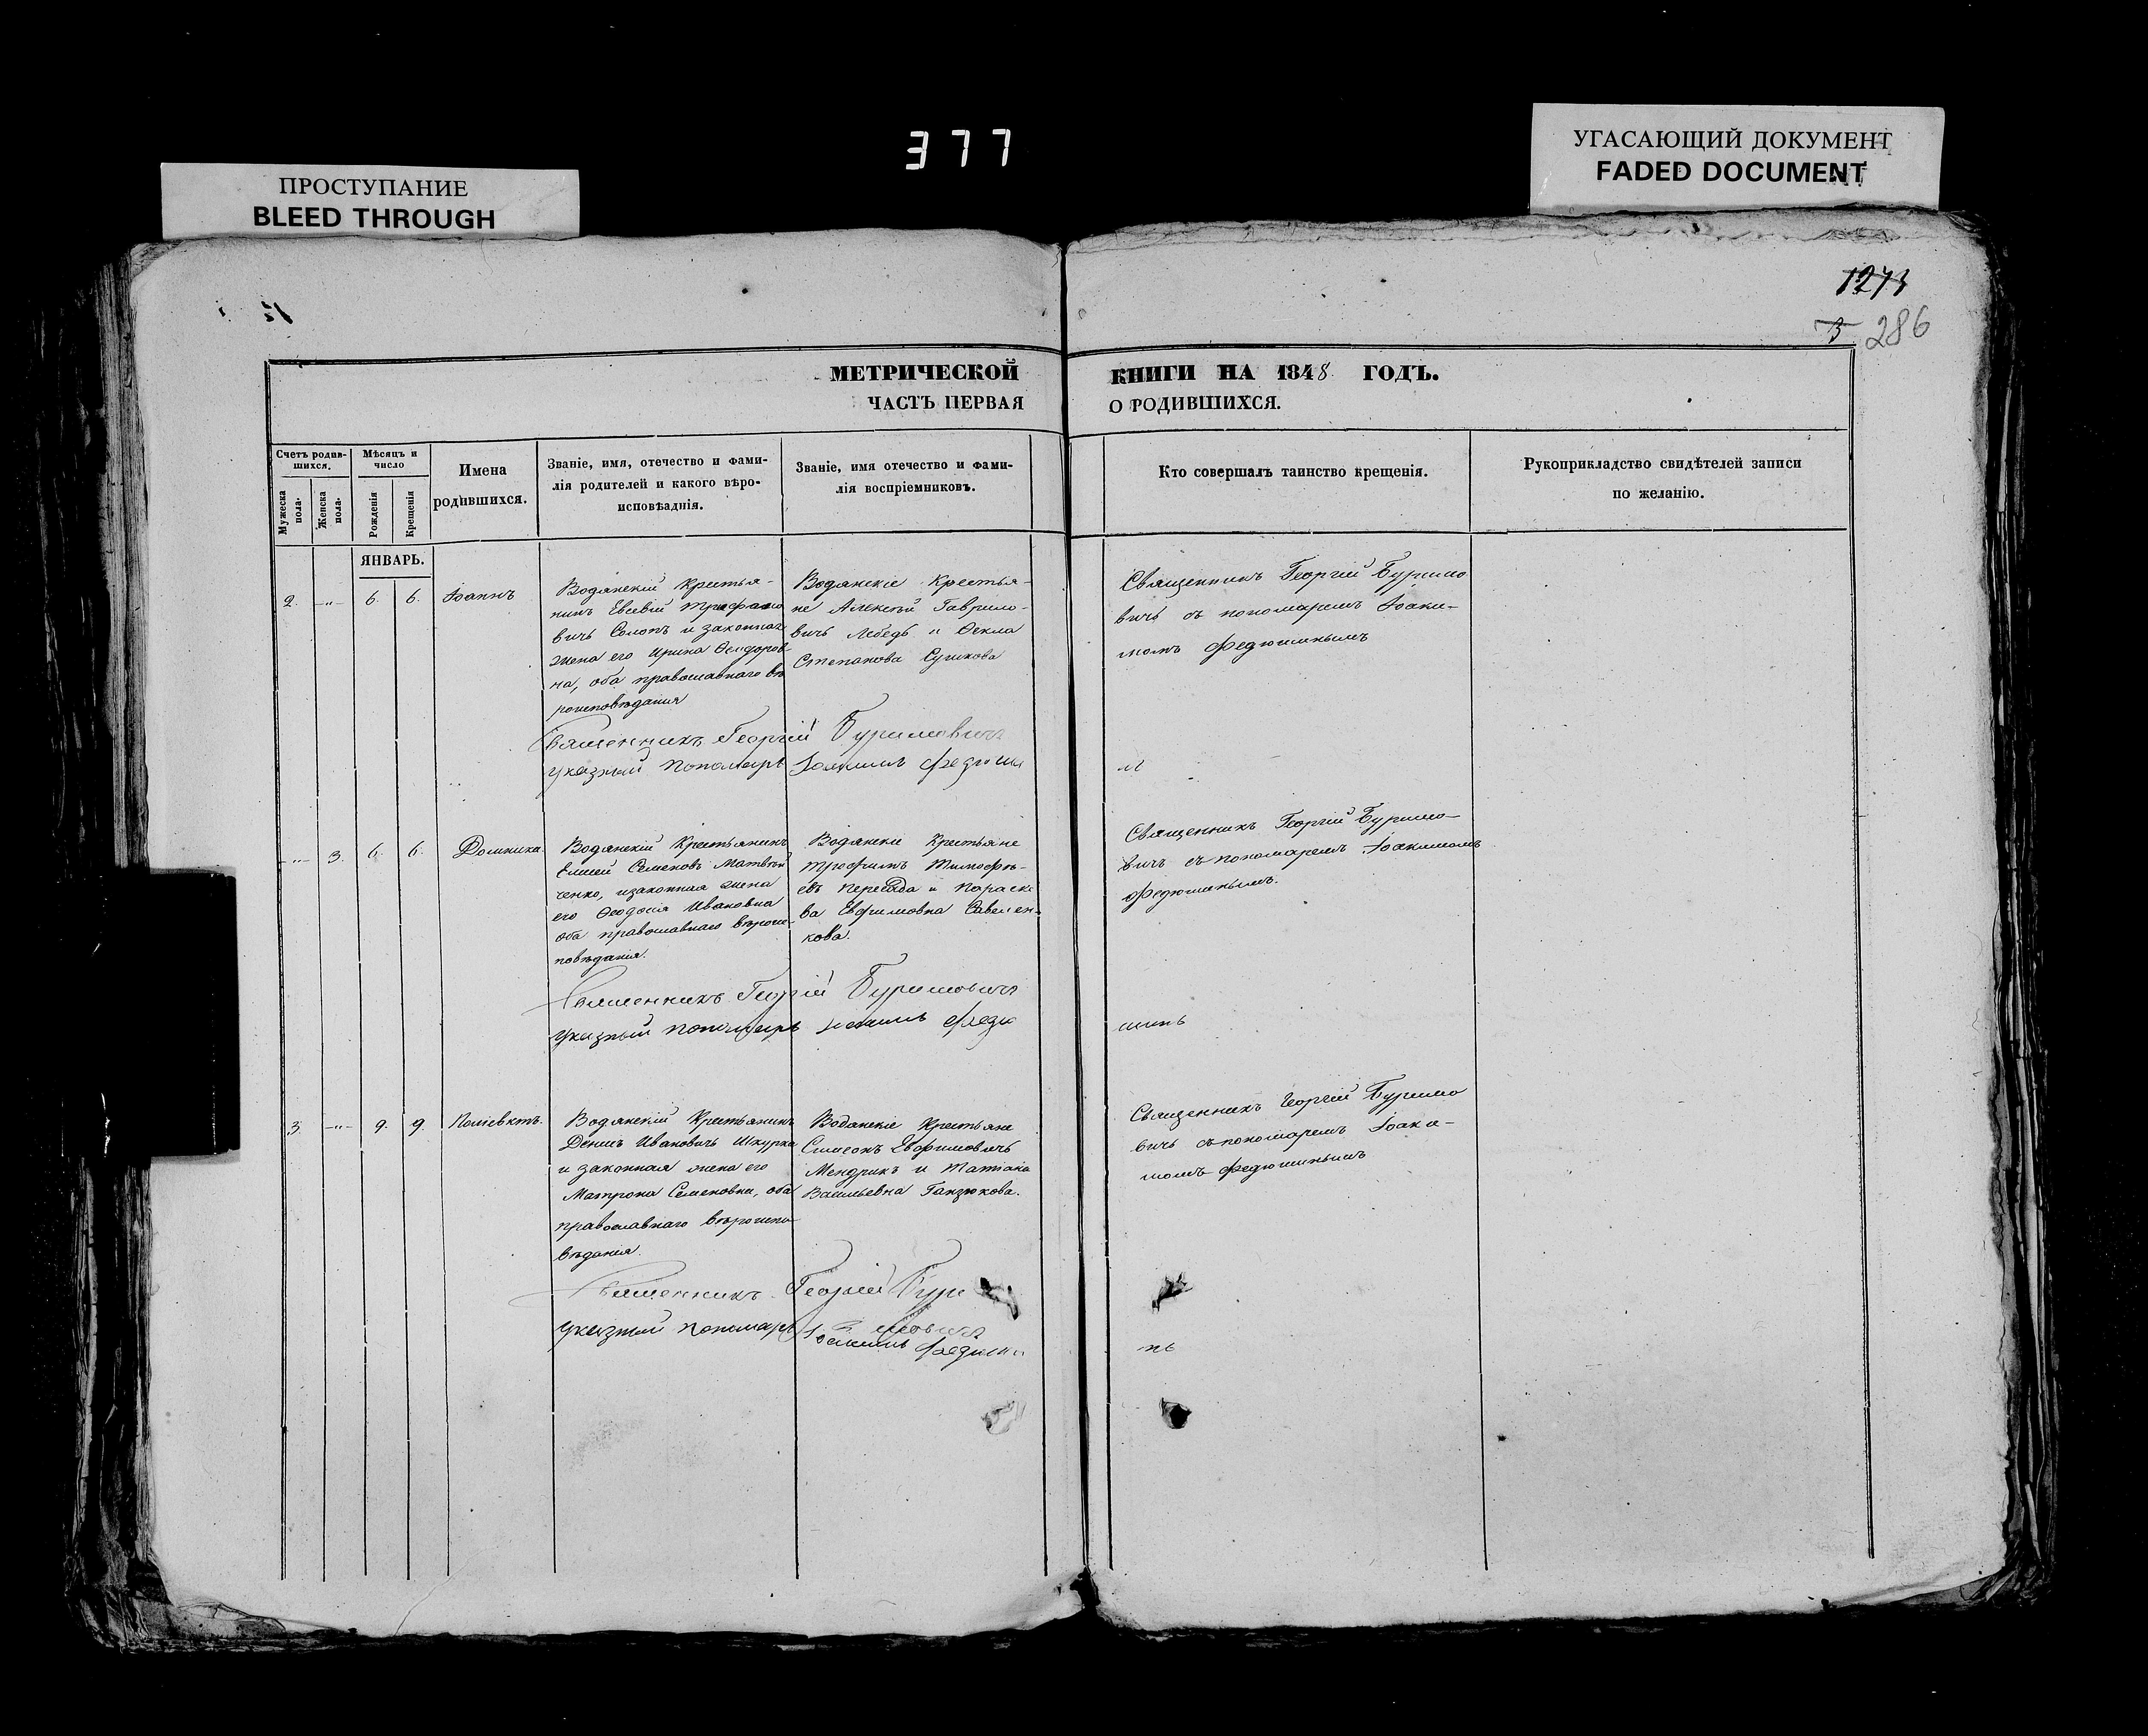 377
ПРОСТУПАНИЕ
BLEED THROUGH
УГАСАЮЩИЙ ДОКУМЕНТ
FADED DOCUMENT
1273
286
МЕТРИЧЕСКОЙ КНИГИ НА 1848 ГОДЪ.
ЧАСТЬ ПЕРВАЯ О РОДИВШИХСЯ.
Счетъ родив-
шихся.
Мужеска пола.
Женска пола.
Мѣсяцъ и
число
Рожденія
Крещенія
Имена
родившихся.
Званіе, имя, отечество и фами-
лія родителей и какого вѣро-
исповѣаднія.
Званіе, имя отечество и фами-
лія воспріемниковъ.
Кто совершалъ таинство крещенія.
Рукоприкладство свидѣтелей записи
по желанію.
ЯНВАРЬ.
2. -"- 6. 6. Іоаннъ
Водянскій Крестья-
нинъ Евсевій Трофимо
вичь Солопъ и законная
жена его Ирина Ѳеодоров
на, оба православнаго вѣ
роисповѣданія
Водянскіе Крестья-
не Алексѣй Гаврило-
вичь Лебедь и Ѳекла
Степанова Сушкова
Священникъ Георгій Буримо
вичь съ пономаремъ Іоаки-
момъ Федюшинымъ
Священникъ Георгій Буримовичъ
указный Пономарь Іоакимъ Федюши
нъ
-"- 3. 6. 6. Домникa
Водянскій Крестьянинъ
Елисей Семеновъ Матвѣй
ченко, и законная жена
его Ѳеодосія Ивановна
оба православнаго вѣроис-
повѣданія.
Водянскіе Крестьяне
Трофимъ Тимофѣ-
евъ Пересада и Параске
ва Евфимовна Савелен-
кова.
Священникъ Георгій Буримо-
вичь съ пономаремъ Іоакимомъ
Федюшинымъ.
Священникъ Георгій Буримовичъ
Указный Пономарь Іоакимъ Федю
шинъ
3. -"- 9. 9. Поліевктъ.
Водянскій Крестьянинъ
Денисъ Ивановичь Шкурка
и законная жена его
Матрона Семеновна, оба
православнаго вѣроиспо
вѣданія.
Водянскіе Крестьяне
Симеонъ Евфимовичь
Мендрикъ и Татіана
Васильевна Ганзюкова.
Священникъ Георгій Буримо
вичь съ пономаремъ Іоаки-
момъ Федюшинымъ
Священникъ Георгій Бури
мовичъ
Указный Пономарь Іоакимъ Федюши
нъ